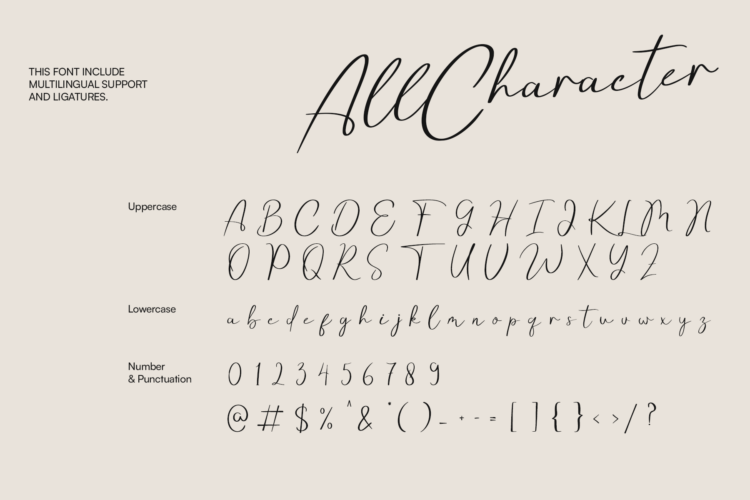 THIS FONT INCLUDE
MULTILINGUAL SUPPORT
AND LIGATURES.
AllCharacter
Uppercase
A B C D E F G H I J K L M N
O P Q R S T U V W X Y Z
Lowercase
a b c d e f g h i j k l m n o p q r s t u v w x y z
Number
& Punctuation
0 1 2 3 4 5 6 7 8 9
@ # $ % ^ & * ( ) _ + - = [ ] { } < > / ?